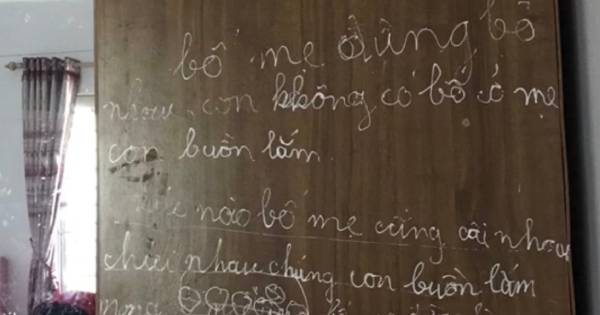 bố mẹ đừng bỏ
nhau, con không có bố có mẹ
con buồn lắm.
nào bố mẹ cũng cãi nhau
chửi nhau chúng con buồn lắm